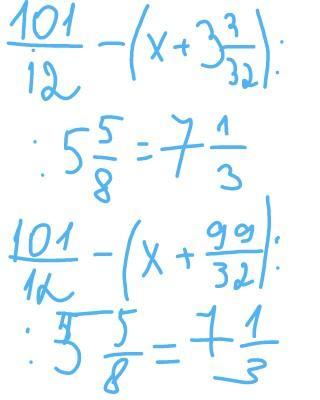 101/12 - (x + 3 3/32) :
: 5 5/8 = 7 1/3
101/12 - (x + 99/32) :
: 5 5/8 = 7 1/3